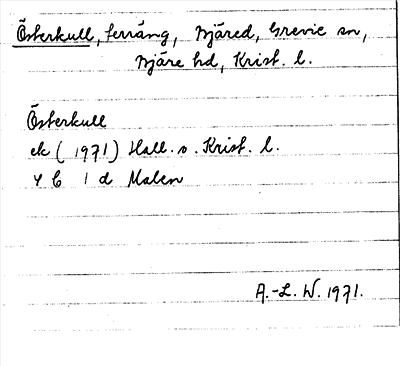 Österkull, terräng, Mjäred, Grevie sn,
Bjäre hd, Krist. l.
Österkull
ek (1971) Hall. o. Krist. l.
4 C 1 d Malen
A.-L. W. 1971.